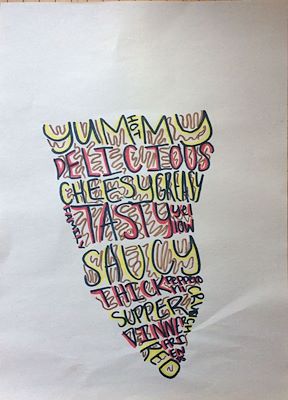 YUMMY
HOT
DELICIOUS
CHEESY GREASY
TASTY yellow
SAUCY
THICK
CRUNCHY
SUPPER
DINNER
RED